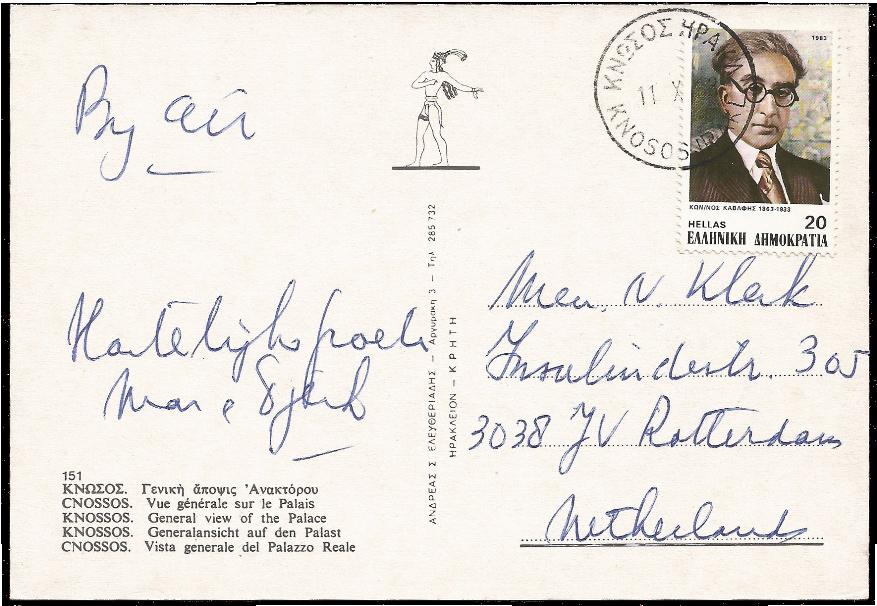 By air
Hartelijke groeten
Mar & Sjerk
151
ΚΝΩΣΟΣ. Γενικὴ ἄποψις Ἀνακτόρου
CNOSSOS. Vue générale sur le Palais
KNOSSOS. General view of the Palace
KNOSSOS. Generalansicht auf den Palast
CNOSSOS. Vista generale del Palazzo Reale
ΑΝΔΡΕΑΣ Σ ΕΛΕΥΘΕΡΙΑΔΗΣ – Αργυρακη 3 – Τηλ 285 732
ΗΡΑΚΛΕΙΟΝ – ΚΡΗΤΗ
ΚΝΩΣΟΣ ΗΡΑΚΛ
11 X
KNOSOS
1983
ΚΩΝ/ΝΟΣ ΚΑΒΑΦΗΣ 1863-1933
HELLAS 20
ΕΛΛΗΝΙΚΗ ΔΗΜΟΚΡΑΤΙΑ
Mevr. v. Klerk
Insulindestr. 305
3038 JV Rotterdam
Netherlands